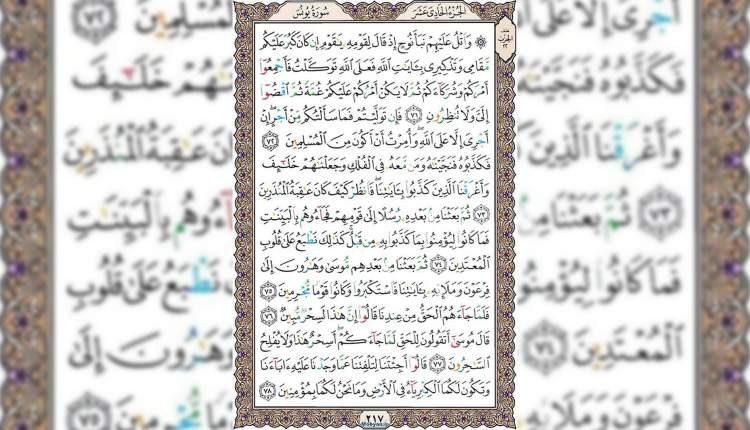 الجزء الحادي عشر
سورة يونس
۞ وَاتْلُ عَلَيْهِمْ نَبَأَ نُوحٍ إِذْ قَالَ لِقَوْمِهِ يَٰقَوْمِ إِن كَانَ كَبُرَ عَلَيْكُم
مَّقَامِي وَتَذْكِيرِي بِـَٔايَٰتِ اللَّهِ فَعَلَى اللَّهِ تَوَكَّلْتُ فَأَجْمِعُوٓا
أَمْرَكُمْ وَشُرَكَآءَكُمْ ثُمَّ لَا يَكُنْ أَمْرُكُمْ عَلَيْكُمْ غُمَّةً ثُمَّ اقْضُوٓا
إِلَيَّ وَلَا تُنظِرُونِ ٧١ فَإِن تَوَلَّيْتُمْ فَمَا سَأَلْتُكُم مِّنْ أَجْرٍ إِنْ
أَجْرِيَ إِلَّا عَلَى اللَّهِ وَأُمِرْتُ أَنْ أَكُونَ مِنَ الْمُسْلِمِينَ ٧٢
فَكَذَّبُوهُ فَنَجَّيْنَٰهُ وَمَن مَّعَهُ فِي الْفُلْكِ وَجَعَلْنَٰهُمْ خَلَٰٓئِفَ
وَأَغْرَقْنَا الَّذِينَ كَذَّبُوا بِـَٔايَٰتِنَا فَانظُرْ كَيْفَ كَانَ عَٰقِبَةُ الْمُنذَرِينَ
٧٣ ثُمَّ بَعَثْنَا مِنۢ بَعْدِهِ رُسُلًا إِلَىٰ قَوْمِهِمْ فَجَآءُوهُم بِالْبَيِّنَٰتِ
فَمَا كَانُوا لِيُؤْمِنُوا بِمَا كَذَّبُوا بِهِ مِن قَبْلُ كَذَٰلِكَ نَطْبَعُ عَلَىٰ قُلُوبِ
الْمُعْتَدِينَ ٧٤ ثُمَّ بَعَثْنَا مِنۢ بَعْدِهِم مُّوسَىٰ وَهَٰرُونَ إِلَىٰ
فِرْعَوْنَ وَمَلَإِيْهِ بِـَٔايَٰتِنَا فَاسْتَكْبَرُوا وَكَانُوا قَوْمًا مُّجْرِمِينَ ٧٥
فَلَمَّا جَآءَهُمُ الْحَقُّ مِنْ عِندِنَا قَالُوٓا إِنَّ هَٰذَا لَسِحْرٌ مُّبِينٌ ٧٦
قَالَ مُوسَىٰٓ أَتَقُولُونَ لِلْحَقِّ لَمَّا جَآءَكُمْ أَسِحْرٌ هَٰذَا وَلَا يُفْلِحُ
السَّٰحِرُونَ ٧٧ قَالُوٓا أَجِئْتَنَا لِتَلْفِتَنَا عَمَّا وَجَدْنَا عَلَيْهِ ءَابَآءَنَا
وَتَكُونَ لَكُمَا الْكِبْرِيَآءُ فِي الْأَرْضِ وَمَا نَحْنُ لَكُمَا بِمُؤْمِنِينَ ٧٨
٢١٧